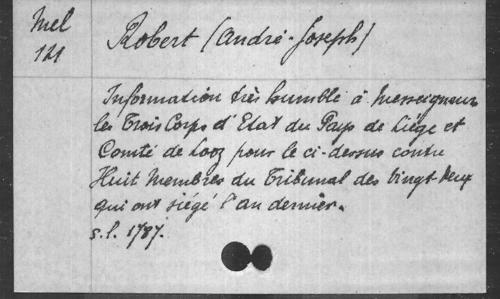 Mel
121
Robert (André-Joseph)
Information très humble à Messeigneurs
les Trois Corps d'Etat du Pays de Liége et
Comté de Looz pour le ci-dessus contre
Huit Membres du Tribunal des Vingt-Deux
qui ont siégé l'an dernier.
s.l. 1787.